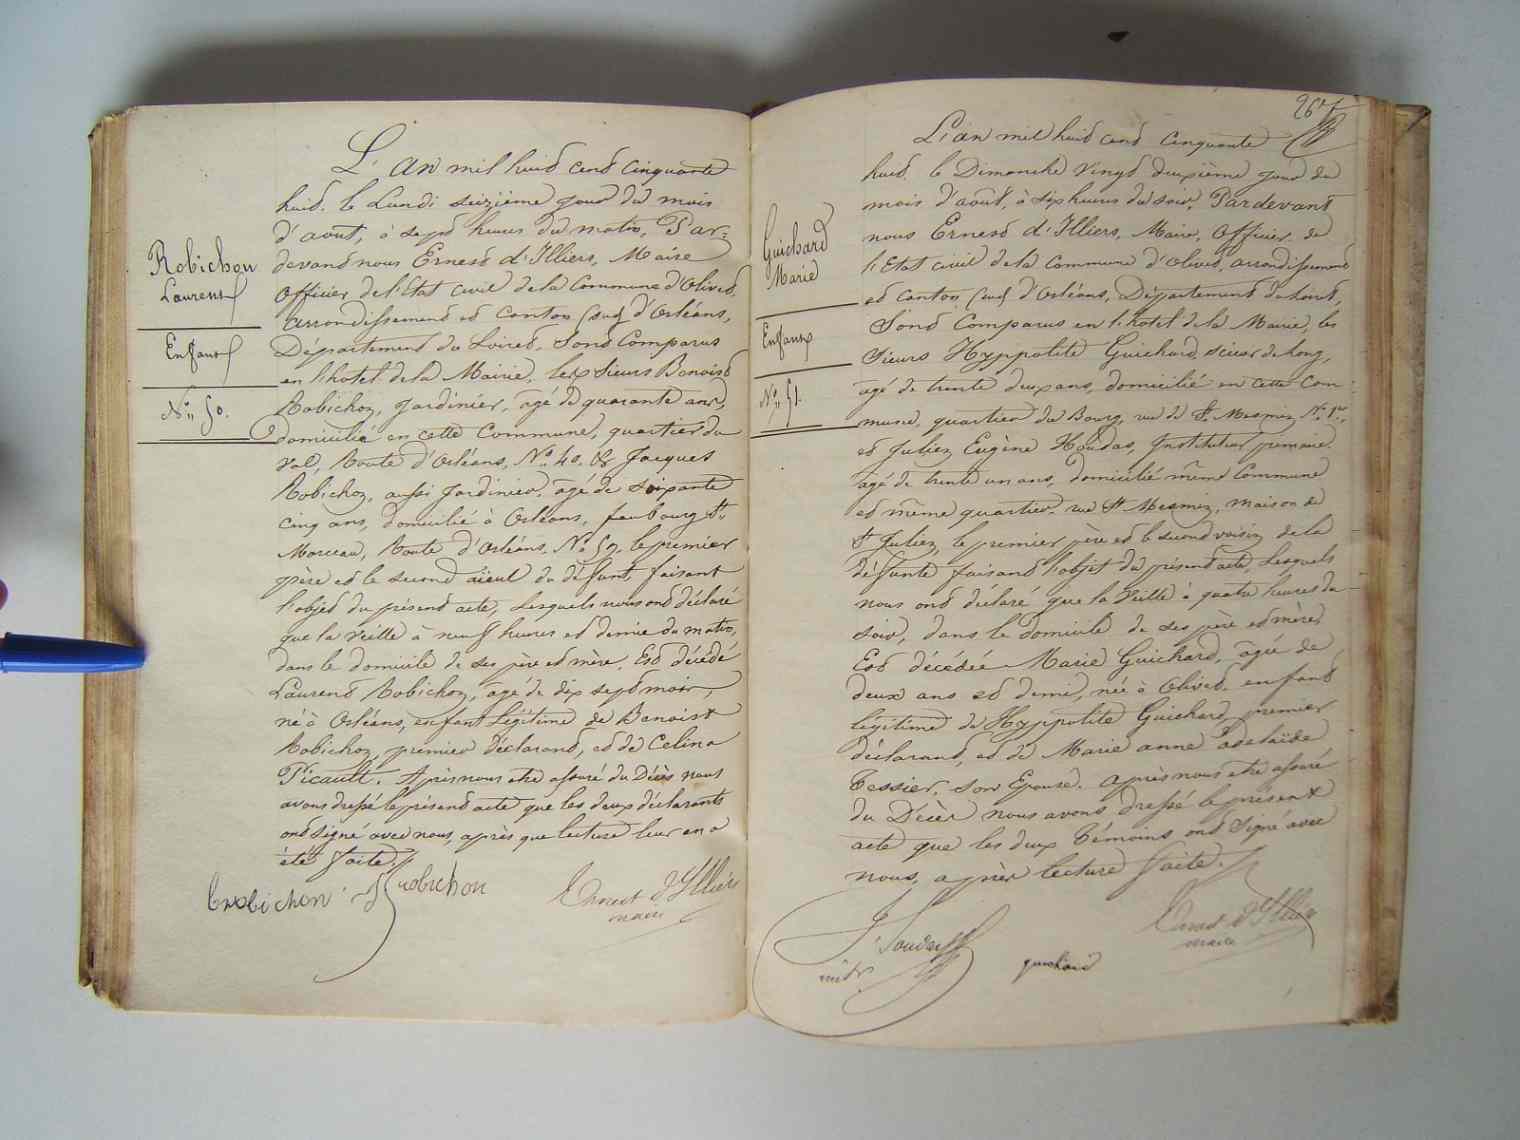 Robichon
Laurent
Enfant
N° 50.
L'an mil huit cent cinquante
huit, le Lundi seizième jour du mois
d'aout, à sept heures du matin, Par=
devant nous Ernest d'Illiers, Maire
Officier de l'Etat civil de la Commune d'Olivet,
arrondissement et canton sud d'Orléans,
Département du Loiret. Sont Comparus
en l'hotel de la Mairie, les Sieurs Benoist
Robichon, Jardinier, agé de quarante ans,
domicilié en cette Commune, quartier du
Val, Route d'Orléans, N° 40, & Jacques
Robichon, aussi Jardinier, agé de soixante
cinq ans, domicilié à Orléans, faubourg St
Marceau, Route d'Orléans, N° 59, le premier
père et le second aïeul du défunt, faisant
l'objet du présent acte, Lesquels nous ont déclaré
que la veille à neuf heures et demie du matin,
dans le domicile de ses père et mère, Est décédé
Laurent Robichon, agé de dix sept mois,
né à Orléans, enfant légitime de Benoist
Robichon, premier déclarant, et de Celina
Picault. Après nous etre assuré du Décès nous
avons dressé le présent acte que les deux déclarants
ont signé avec nous, après que lecture leur en a
été faite.
brobichon robichon Ernest d'Illiers
maire
267
Guichard
Marie
Enfant
N° 51.
L'an mil huit cent cinquante
huit, le Dimanche vingt deuxième jour du
mois d'août, à six heures du soir, Pardevant
nous Ernest d'Illiers, Maire, Officier de
l'Etat civil de la Commune d'Olivet, arrondissement
et canton sud d'Orléans, Département du Loiret,
Sont Comparus en l'hotel de la Mairie, les
Sieurs Hyppolite Guichard, scieur de long,
agé de trente deux ans, domicilié en cette Com=
mune, quartier du Bourg, rue de St Mesmin N° 1er,
et Julien Eugène Houdas, Instituteur primaire
agé de trente un ans, domicilié même Commune
et même quartier, rue St Mesmin, maison de
St Julien, le premier père et le second voisin de la
défunte faisant l'objet du présent acte, Lesquels
nous ont déclaré que la veille à quatre heures du
soir, dans le domicile de ses père et mère,
Est décédée Marie Guichard, agée de
deux ans et demi, née à Olivet, enfant
légitime de Hyppolite Guichard, premier
déclarant, et de Marie anne adelaïde
Tessier, son Epouse. Après nous etre assuré
du Décès nous avons dressé le présent
acte que les deux témoins ont signé avec
nous, après lecture faite.
Ernest d'Illiers
maire
guichard